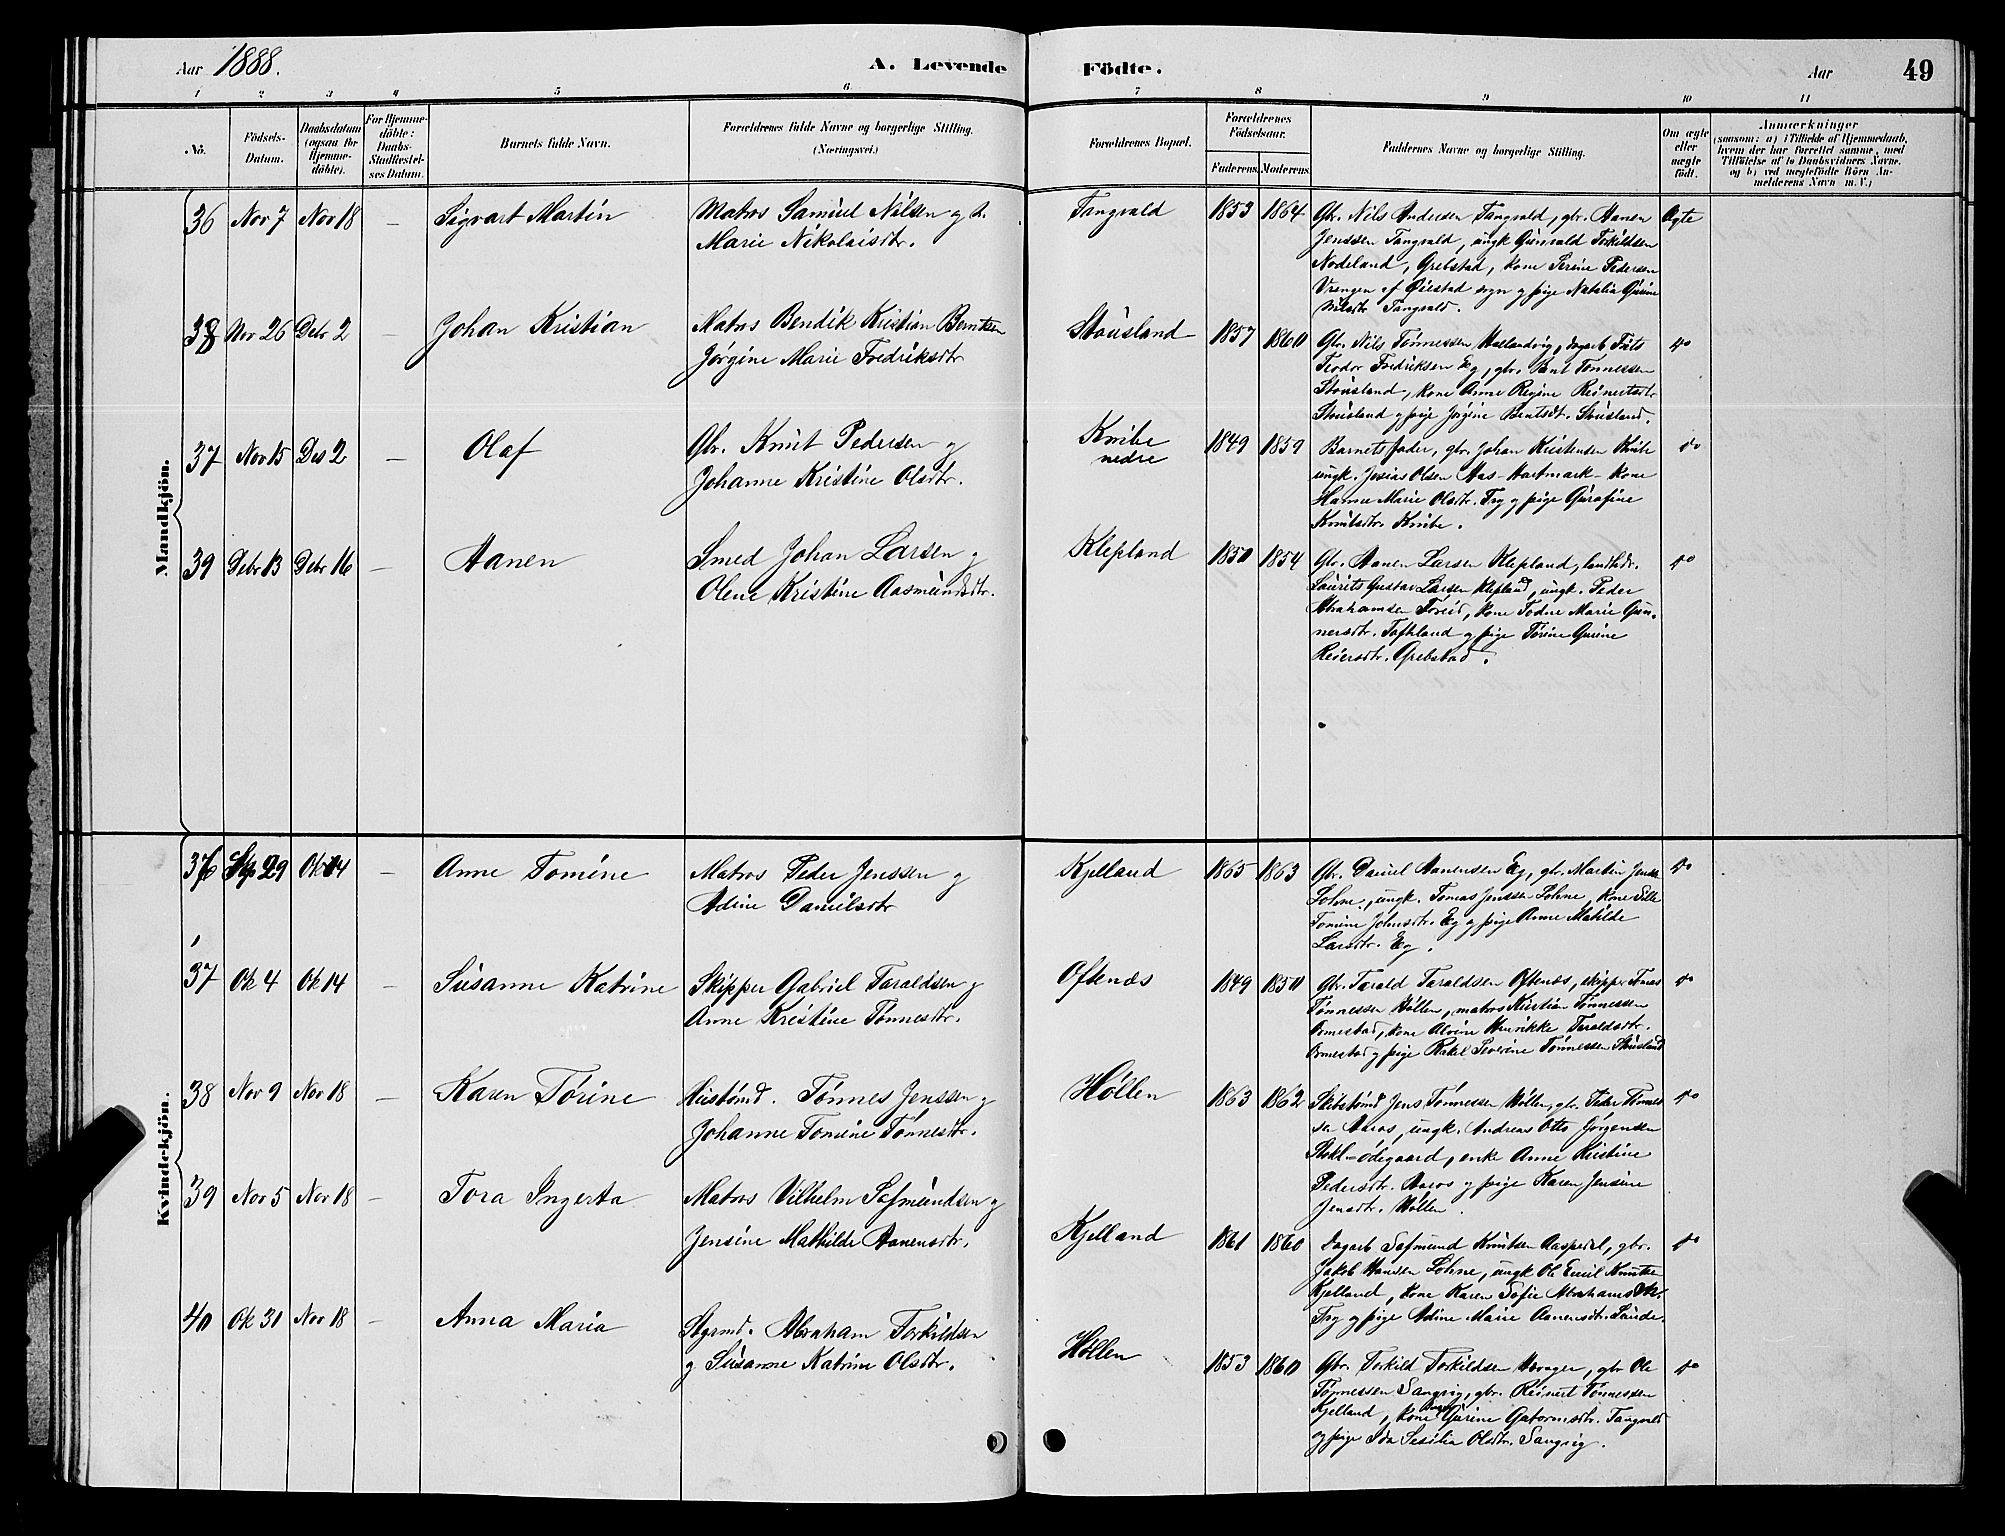 Aar 1888. A. Levende Födte. Aar 49
1 2 3 4 5 6 7 8 9 10 11
No. Födsels-Datum. Daabsdatum (ogsaa for Hjemmedöbte). For Hjemmedöbte: Daabs-Stadfæstelses Datum. Barnets fulde Navn. Forældrenes fulde Navne og borgerlige Stilling. (Næringsvei.) Forældrenes Bopæl. Forældrenes Födselsaar. Faderens. Moderens. Faddernes Navne og borgerlige Stilling. Om ægte eller uægte födt. Anmærkninger (saasom: a) i Tilfælde af Hjemmedaab, hvem der har forrettet samme, med Tilföielse af to Daabsvidners Navne, og b) ved uægtefödte Börn Anmelderens Navn m. V.)
Mandkjön.
36 Nov 7 Nov 18 — Sigvart Martin
Matros Samuel Nilsen og h.
Marie Nikolaisdtr.
Tangvald 1853 1864
Gbr. Nils Andersen Tangvald, gbr. Aanen
Jenssen Tangvald, ungk Gunvald Torkildsen
Nodeland, Grebstad, kone Serine Pedersen
Vrengen af Øiestad sogn og pige Natalia Gurine
Nilsdtr Tangvald.
Ægte
38 Nov 26 Debr 2 — Johan Kristian
Matros Bendik Kristian Berntsen
Jørgine Marie Fredriksdtr
Stousland 1857 1860
Gbr. Nils Tønnessen Hallandvig, dagarb Frits
Teodor Fredriksen Eg, gbr. Bent Tønnessen
Stousland, kone Anne Regine Reinertsdtr
Stousland og pige Jørgine Bentsdt. Stousland.
do
37 Nov 15 Des 2 — Olaf
Gbr. Knut Pedersen og
Johanne Kristine Olsdtr.
Knibe
nedre
1849 1859
Barnets fader, gbr. Johan Kristensen Knibe
ungk. Josias Olsen Aas - Hartmark - kone
Hanne Marie Olsdtr. Try og pige Gurafine
Knutsdtr. Knibe.
do
39 Debr 13 Debr 16 — Aanen
Smed Johan Larsen og
Olene Kristine Aasmundsdtr.
Klepland 1850 1854
Gbr. Aanen Larsen Klepland, landhdr.
Laurits Gustav Larsen Klepland, ungk. Peder
Abrahamsen Foreid, kone Todne Marie Gun-
nersdtr. Toftland og pige Tørine Gurine
Reiersdtr. Grebstad.
do
Kvindekjön.
36 Sep 29 Ok 14 — Anne Tomine
Matros Peder Jenssen og
Adine Danielsdtr
Kjelland 1865 1863
Gbr. Daniel Aanensen Eg, gbr. Martin Jenssen
Lohne, ungk. Tomas Jenssen Lohne, kone Sille
Tomine Johnsdtr. Eg og pige Anne Matilde
Larsdtr. Eg.
do
37 Ok 4 Ok 14 — Susanne Katrine
Skipper Gabriel Taraldsen og
Anne Kristine Tønnesdtr.
Oftenæs 1849 1850
Gbr. Tarald Taraldsen Oftenæs, skipper Tomas
Tønnessen Høllen, matros Kristian Tønnessen
Ormestad, kone Alvine Henrikke Taraldsdtr.
Ormestad og pige Rakel Severine Tønnessen Stousland
do
38 Nov 9 Nov 18 — Karen Tørine
Tønnes Jenssen og
Johanne Tomine Tønnesdtr.
Høllen 1863 1862
Skibstømd Jens Tønnessen Høllen, gbr. Peder Tønnes-
sen Aaros, ungk. Andreas Otto Jørgensen
Stokl-ødegaard, enke Anne Kristine
Pedersdtr. Aaros og pige Karen Jensine
Jensdtr. Høllen.
do
39 Nov 5 Nov 18 — Tora Ingerta
Matros Vilhelm Safmundsen og
Jensine Mathilde Aanensdtr.
Kjelland 1861 1860
Dagarb Safmund Knutsen Aaspedal, gbr.
Jakob Hansen Lohne, ungk Ole Emil Knutsen
Kjelland, kone Karen Sofie Abrahamsdtr.
Try og pige Adine Marie Aanensdtr. Sande.
do
40 Ok 31 Nov 18 — Anna Maria
Styrmd. Abraham Torkildsen
og Susanne Katrine Olsdtr.
Høllen 1853 1860
Gbr. Torkild Torkildsen Vrager, gbr Ole
Tønnessen Sangvig, gbr. Reinert Tønnessen
Kjelland, kone Gurine Gutormsdtr. Tangvald
og pige Ida Sesilia Olsdtr. Sangvig.
do